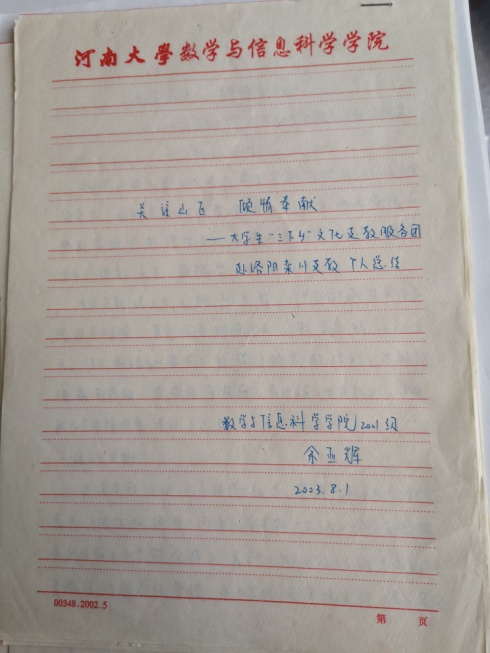 河南大學数学与信息科学学院
关注山区 倾情奉献
——大学生“三下乡”文化支教服务团
赴洛阳栾川支教个人总结
数学与信息科学学院2001级
余亚辉
2003.8.1
00348.2002.5
第 页